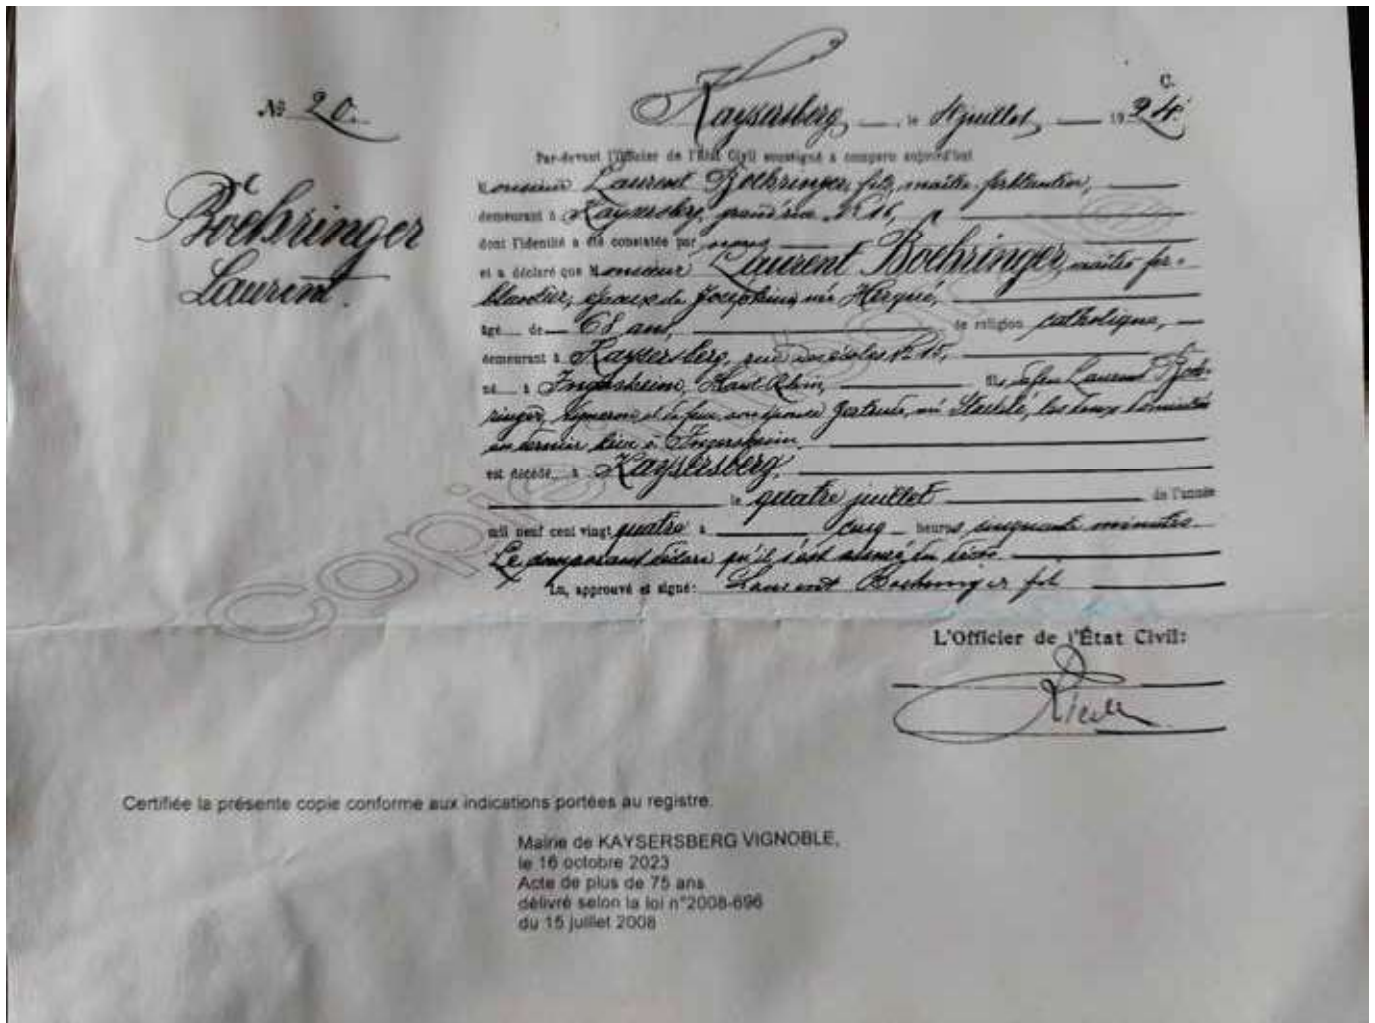 C.
№ 20.
Kaysersberg, le 4 juillet 1924.
Par-devant l'Officier de l'État Civil soussigné a comparu aujourd'hui
Monsieur Laurent Boehringer, fils, maître-ferblantier,
Boehringer
Laurent.
demeurant à Kaysersberg, grand'rue N° 16,
dont l'identité a été constatée par
et a déclaré que Monsieur Laurent Boehringer, maître fer-
blantier, époux de Joséphine née Herqué,
âgé de 68 ans, de religion catholique,
demeurant à Kaysersberg, rue des écoles N° 15,
né à Ingersheim, Haut-Rhin, fils de feu Laurent Boeh-
ringer, vigneron, et de feue son épouse Gertrude, née les deux domiciliés
en dernier lieu à Ingersheim
est décédé à Kaysersberg,
le quatre juillet de l'année
mil neuf cent vingt quatre à cinq heures cinquante minutes.
Le comparant déclare qu'il s'est assuré du décès.
Lu, approuvé et signé: Laurent Boehringer fils
L'Officier de l'État Civil:
Copie
Certifiée la présente copie conforme aux indications portées au registre.
Mairie de KAYSERSBERG VIGNOBLE,
le 16 octobre 2023
Acte de plus de 75 ans
délivré selon la loi n°2008-696
du 15 juillet 2008